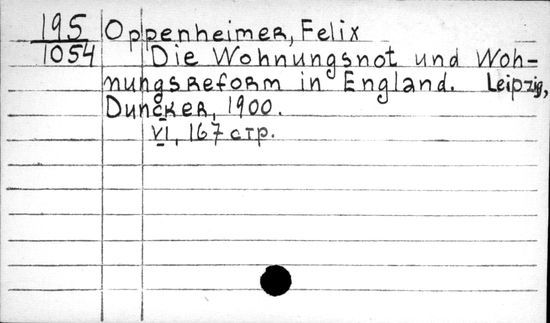 195 Oppenheimer, Felix
1054 Die Wohnungsnot und Woh-
nungsreform in England. Leipzig,
Duncker, 1900.
VI, 167 стр.